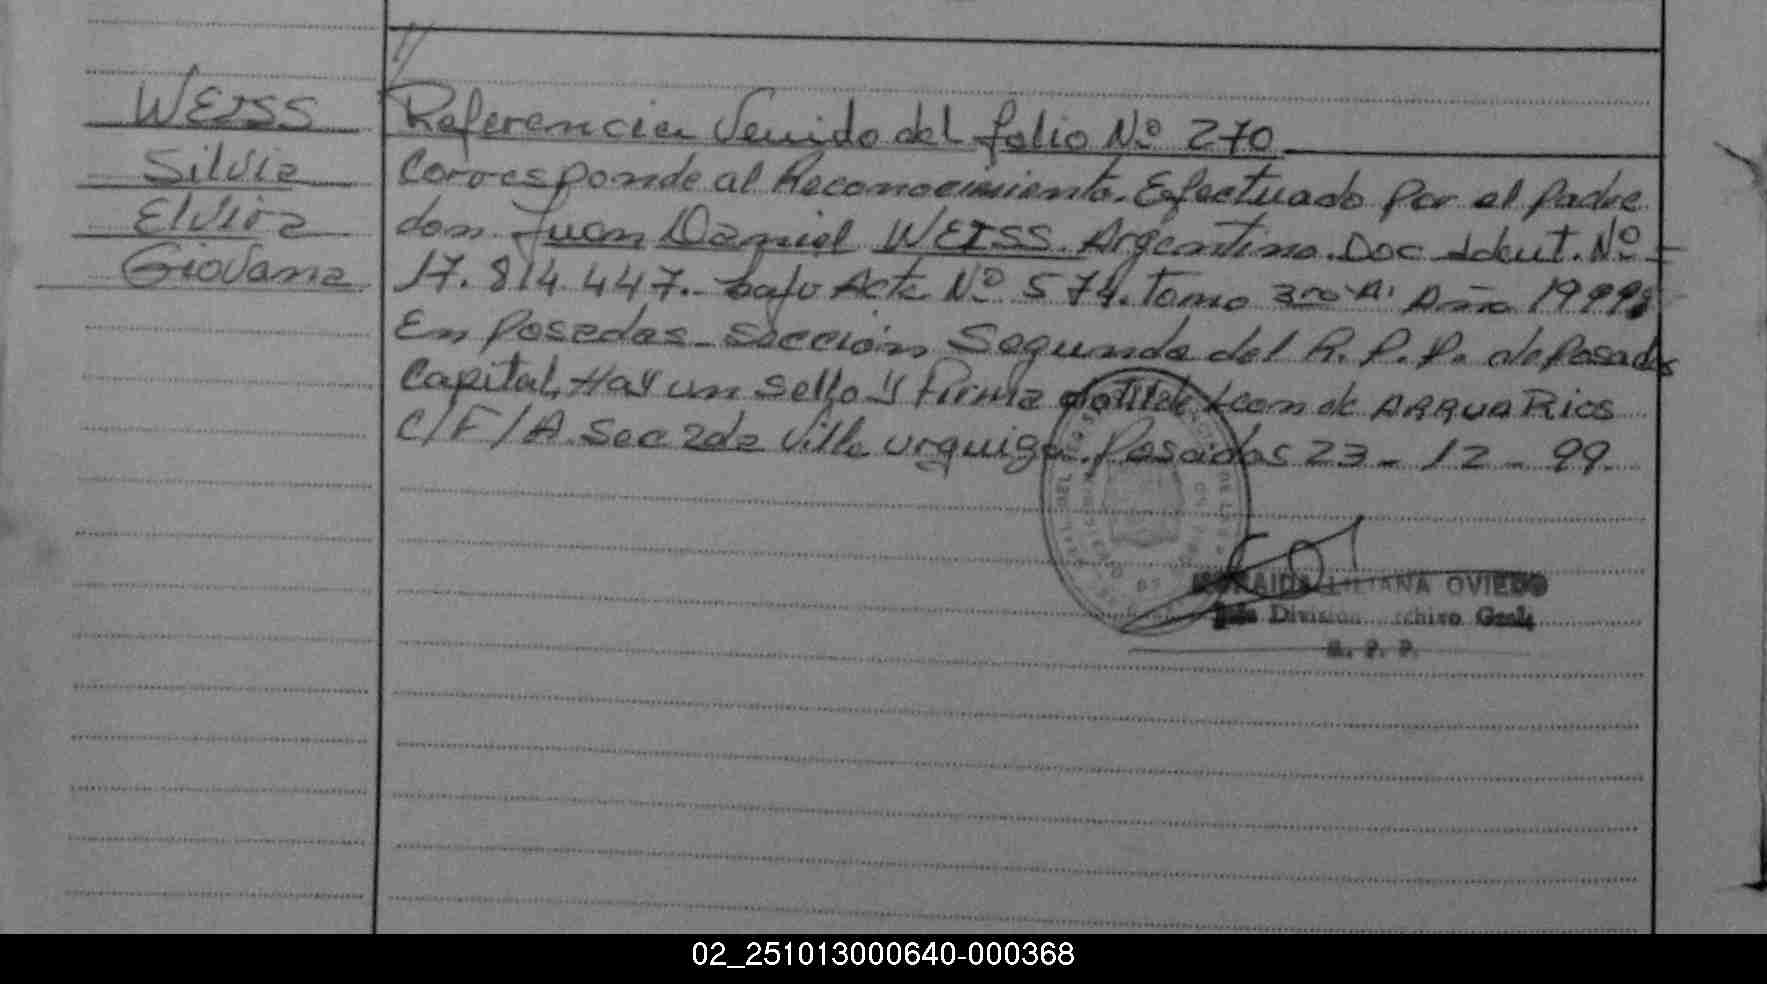 WEISS
Silvia
Elvira
Giovana
Referencia Venido del folio Nº 270
Corresponde al Reconocimiento. Efectuado por el padre
don Juan Daniel WEISS. Argentino. Doc Ident. Nº
17.814.447. bajo Acta Nº 574. Tomo 3ro "A" Año 1999
En Posadas - Sección Segunda del R. P. P. de Posadas
Capital, Hay un sello y Firma de ARRUA RIOS
C/F/A. Sec 2da Villa Urquiza. Posadas 23 - 12 - 99.
LILIANA OVIEDO
División Gral
R. P. P.
02_251013000640-000368